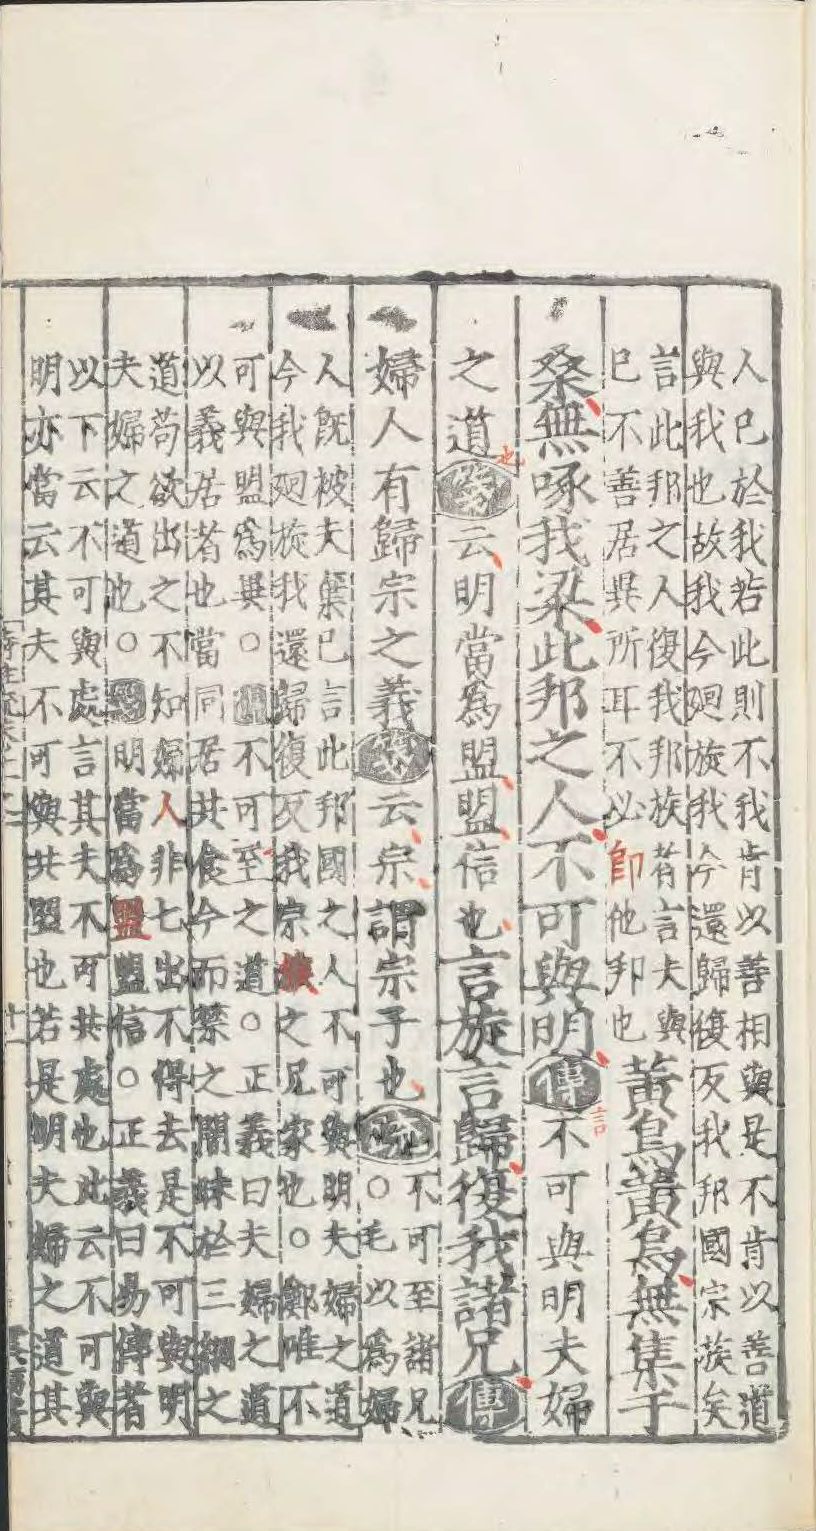 人已於我若此則不我肯以善相與是不肯以善道
與我也故我今廻旋我今還歸復反我邦國宗族矣
言此邦之人復我邦族者言夫與
已不善居異所耳不必卽他邦也
黃鳥黃鳥無集于
桑無啄我粱此邦之人不可與明傳不可與明夫婦
之道也箋云明當爲盟盟信也言旋言歸復我諸兄傳
婦人有歸宗之義箋云宗謂宗子也疏
不可至諸兄
○毛以爲婦
人旣被夫棄已言此邦國之人不可與明夫婦之道
今我廻旋我還歸復反我宗族之兄家也○鄭唯不
可與盟爲異○傳不可至之道○正義曰夫婦之道
以義居者也當同居共食今而禁之闇昧於三綱之
道苟欲出之不知婦人非七出不得去是不可與明
夫婦之道也○箋明當爲盟盟信○正義曰易傳者
以下云不可與處言其夫不可共處也此云不可與
明亦當云其夫不可與共盟也若是明夫婦之道其
言